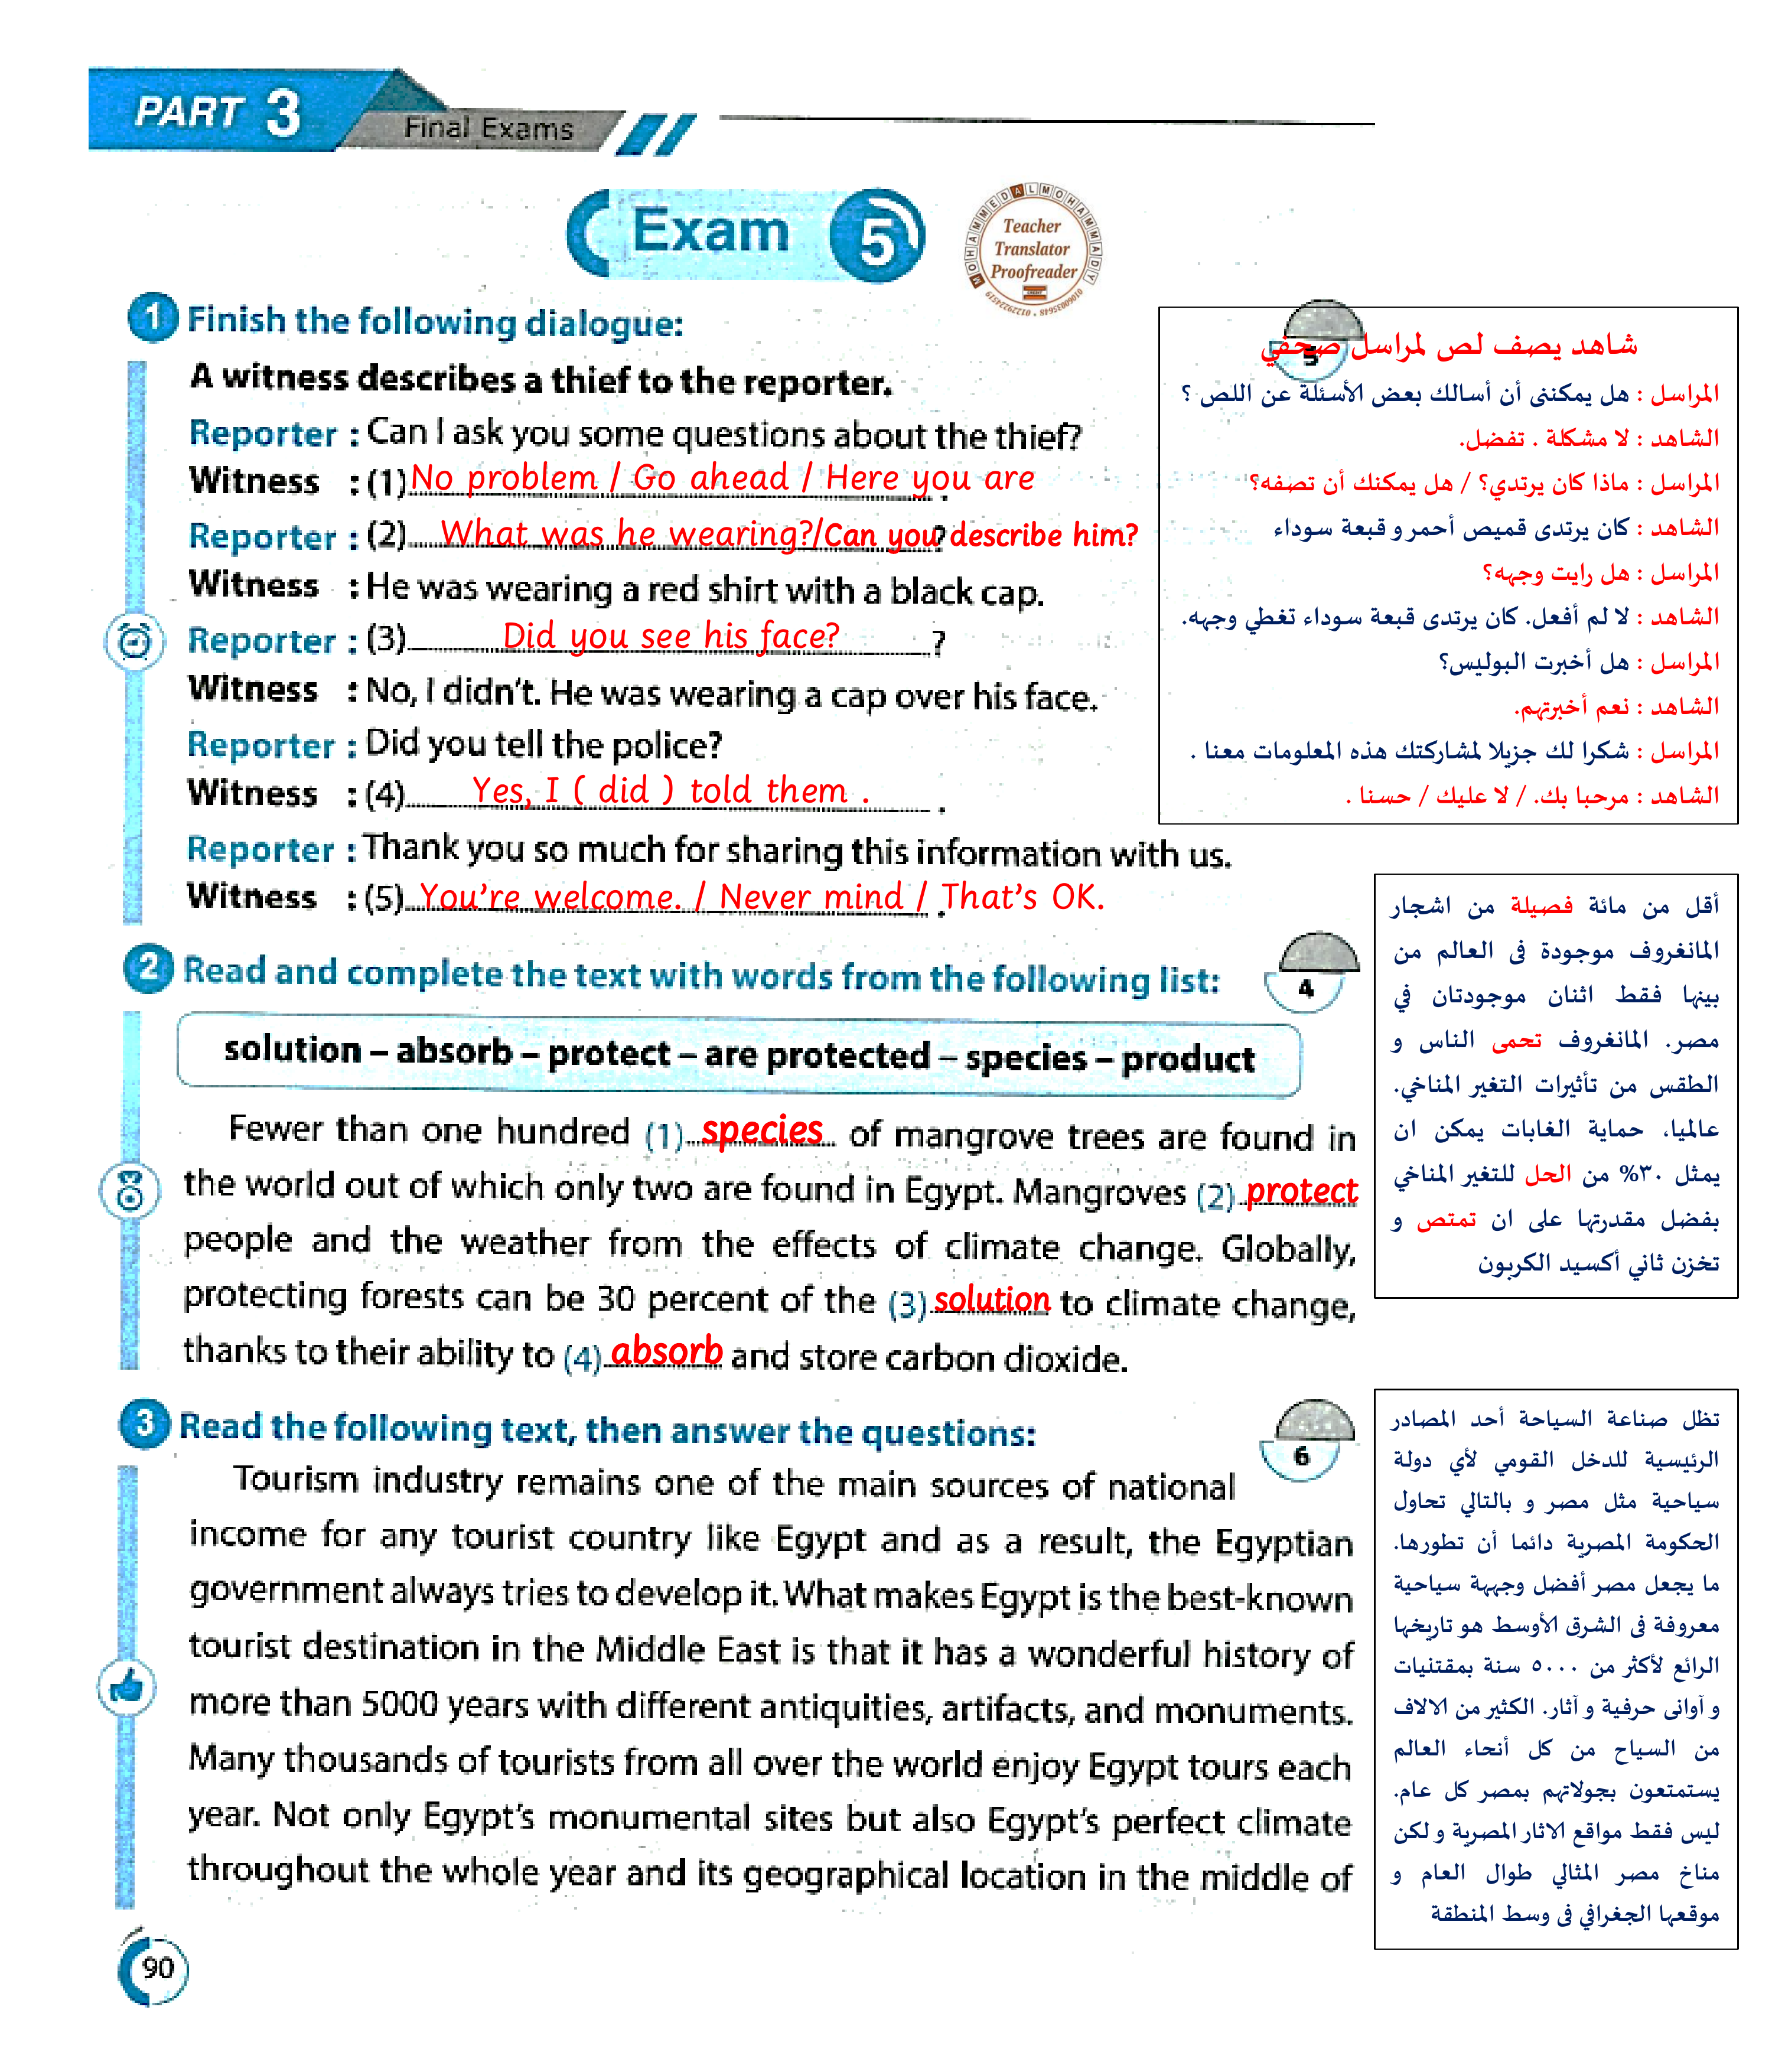 PART 3
Final Exams
Exam 5
MOHAMMED ALMOHAMMADY
Teacher
Translator
Proofreader
1 Finish the following dialogue:
5
A witness describes a thief to the reporter.
Reporter : Can I ask you some questions about the thief?
Witness : (1) No problem / Go ahead / Here you are .
Reporter : (2) What was he wearing?/Can you describe him? ?
Witness : He was wearing a red shirt with a black cap.
Reporter : (3) Did you see his face? ?
Witness : No, I didn't. He was wearing a cap over his face.
Reporter : Did you tell the police?
Witness : (4) Yes, I ( did ) told them . .
Reporter : Thank you so much for sharing this information with us.
Witness : (5) You're welcome. / Never mind / That's OK. .
شاهد يصف لص لمراسل صحفي
المراسل : هل يمكننى أن أسالك بعض الأسئلة عن اللص ؟
الشاهد : لا مشكلة . تفضل.
المراسل : ماذا كان يرتدي؟ / هل يمكنك أن تصفه؟
الشاهد : كان يرتدى قميص أحمر و قبعة سوداء
المراسل : هل رايت وجهه؟
الشاهد : لا لم أفعل. كان يرتدى قبعة سوداء تغطي وجهه.
المراسل : هل أخبرت البوليس؟
الشاهد : نعم أخبرتهم.
المراسل : شكرا لك جزيلا لمشاركتك هذه المعلومات معنا .
الشاهد : مرحبا بك. / لا عليك / حسنا .
2 Read and complete the text with words from the following list:
4
solution – absorb – protect – are protected – species – product
Fewer than one hundred (1) species of mangrove trees are found in
the world out of which only two are found in Egypt. Mangroves (2) protect
people and the weather from the effects of climate change. Globally,
protecting forests can be 30 percent of the (3) solution to climate change,
thanks to their ability to (4) absorb and store carbon dioxide.
أقل من مائة فصيلة من اشجار
المانغروف موجودة فى العالم من
بينها فقط اثنان موجودتان في
مصر. المانغروف تحمى الناس و
الطقس من تأثيرات التغير المناخي.
عالميا، حماية الغابات يمكن ان
يمثل ٣٠% من الحل للتغير المناخي
بفضل مقدرتها على ان تمتص و
تخزن ثاني أكسيد الكربون
3 Read the following text, then answer the questions:
6
Tourism industry remains one of the main sources of national
income for any tourist country like Egypt and as a result, the Egyptian
government always tries to develop it. What makes Egypt is the best-known
tourist destination in the Middle East is that it has a wonderful history of
more than 5000 years with different antiquities, artifacts, and monuments.
Many thousands of tourists from all over the world enjoy Egypt tours each
year. Not only Egypt's monumental sites but also Egypt's perfect climate
throughout the whole year and its geographical location in the middle of
تظل صناعة السياحة أحد المصادر
الرئيسية للدخل القومي لأي دولة
سياحية مثل مصر و بالتالي تحاول
الحكومة المصرية دائما أن تطورها.
ما يجعل مصر أفضل وجهة سياحية
معروفة فى الشرق الأوسط هو تاريخها
الرائع لأكثر من ٥٠٠٠ سنة بمقتنيات
و آوانى حرفية و آثار. الكثير من الالاف
من السياح من كل أنحاء العالم
يستمتعون بجولاتهم بمصر كل عام.
ليس فقط مواقع الاثار المصرية و لكن
مناخ مصر المثالي طوال العام و
موقعها الجغرافي فى وسط المنطقة
90